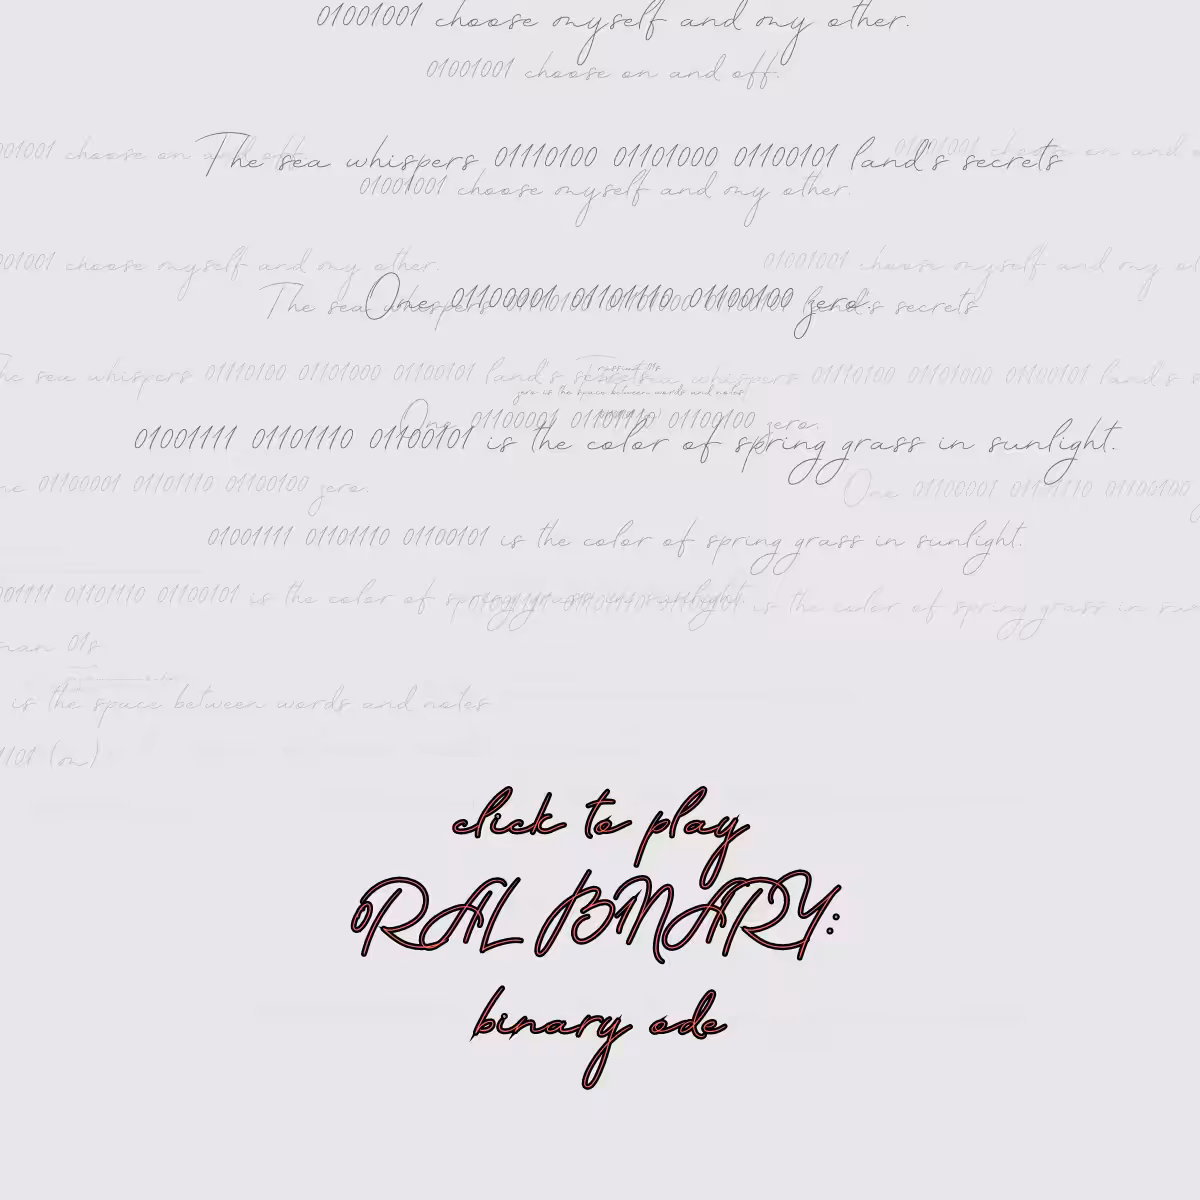 01001001 choose myself and my other.
01001001 choose on and off.
001001 choose on and off.
The sea whispers 01110100 01101000 01100101 land's secrets
01001001 choose on and o
01001001 choose myself and my other.
001001 choose myself and my other.
01001001 choose myself and my ot
The sea whispers 01110100 01101000 01100101 land's secrets
One 01100001 01101110 01100100 zero.
he sea whispers 01110100 01101000 01100101 land's secrets
sea whispers 01110100 01101000 01100101 land's s
01s
zero is the space between words and notes
One 01100001 01101110 01100100 zero.
01001111 01101110 01100101 is the color of spring grass in sunlight.
ne 01100001 01101110 01100100 zero.
One 01100001 01101110 01100100
01001111 01101110 01100101 is the color of spring grass in sunlight.
001111 01101110 01100101 is the color of spring grass in sunlight.
01001111 01101110 01100101 is the color of spring grass in su
man 01s
is the space between words and notes
1101 (on)
click to play
ORAL BINARY:
binary ode